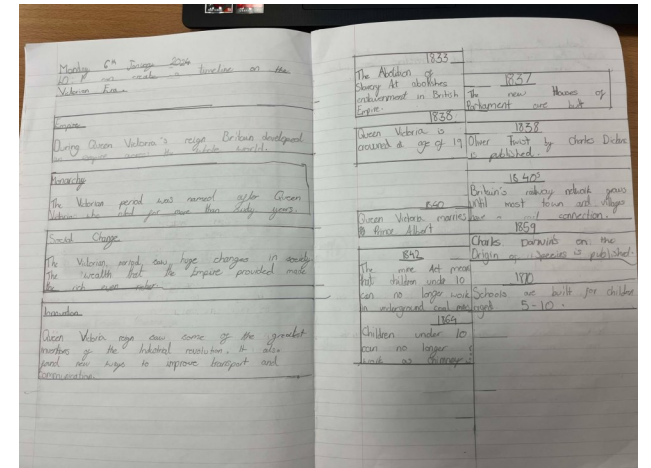 Monday 6th 2024
LO: I can create a timeline on the
Victorian Era.
Empire
During Queen Victoria's reign Britain developed
an empire across the whole world.
Monarchy
The Victorian period was named after Queen
Victoria who ruled for more than sixty years.
Social Change
The Victorian period saw huge changes in society.
The wealth that the Empire provided made
the rich even richer.
Innovation
Queen Victoria reign saw some of the greatest
inventions of the Industrial revolution. It also
found new ways to improve transport and
communication.
1833
The Abolition of
Slavery Act abolishes
enslavement in British
Empire.
1838
Queen Victoria is
crowned at age of 19
1840
Queen Victoria marries
Prince Albert
1842
The mine Act mean
that children under 10
can no longer work
in underground coal
1864
Children under 10
can no longer
work as chimney
1837
The new Houses of
Parliament are built
1838
Oliver Twist by Charles Dickens
is published.
1840s
Britain's railway network grows
until most town and villages
have a rail connection.
1859
Charles Darwin's on the
Origin of Species is published.
1870
Schools are built for children
aged 5-10.